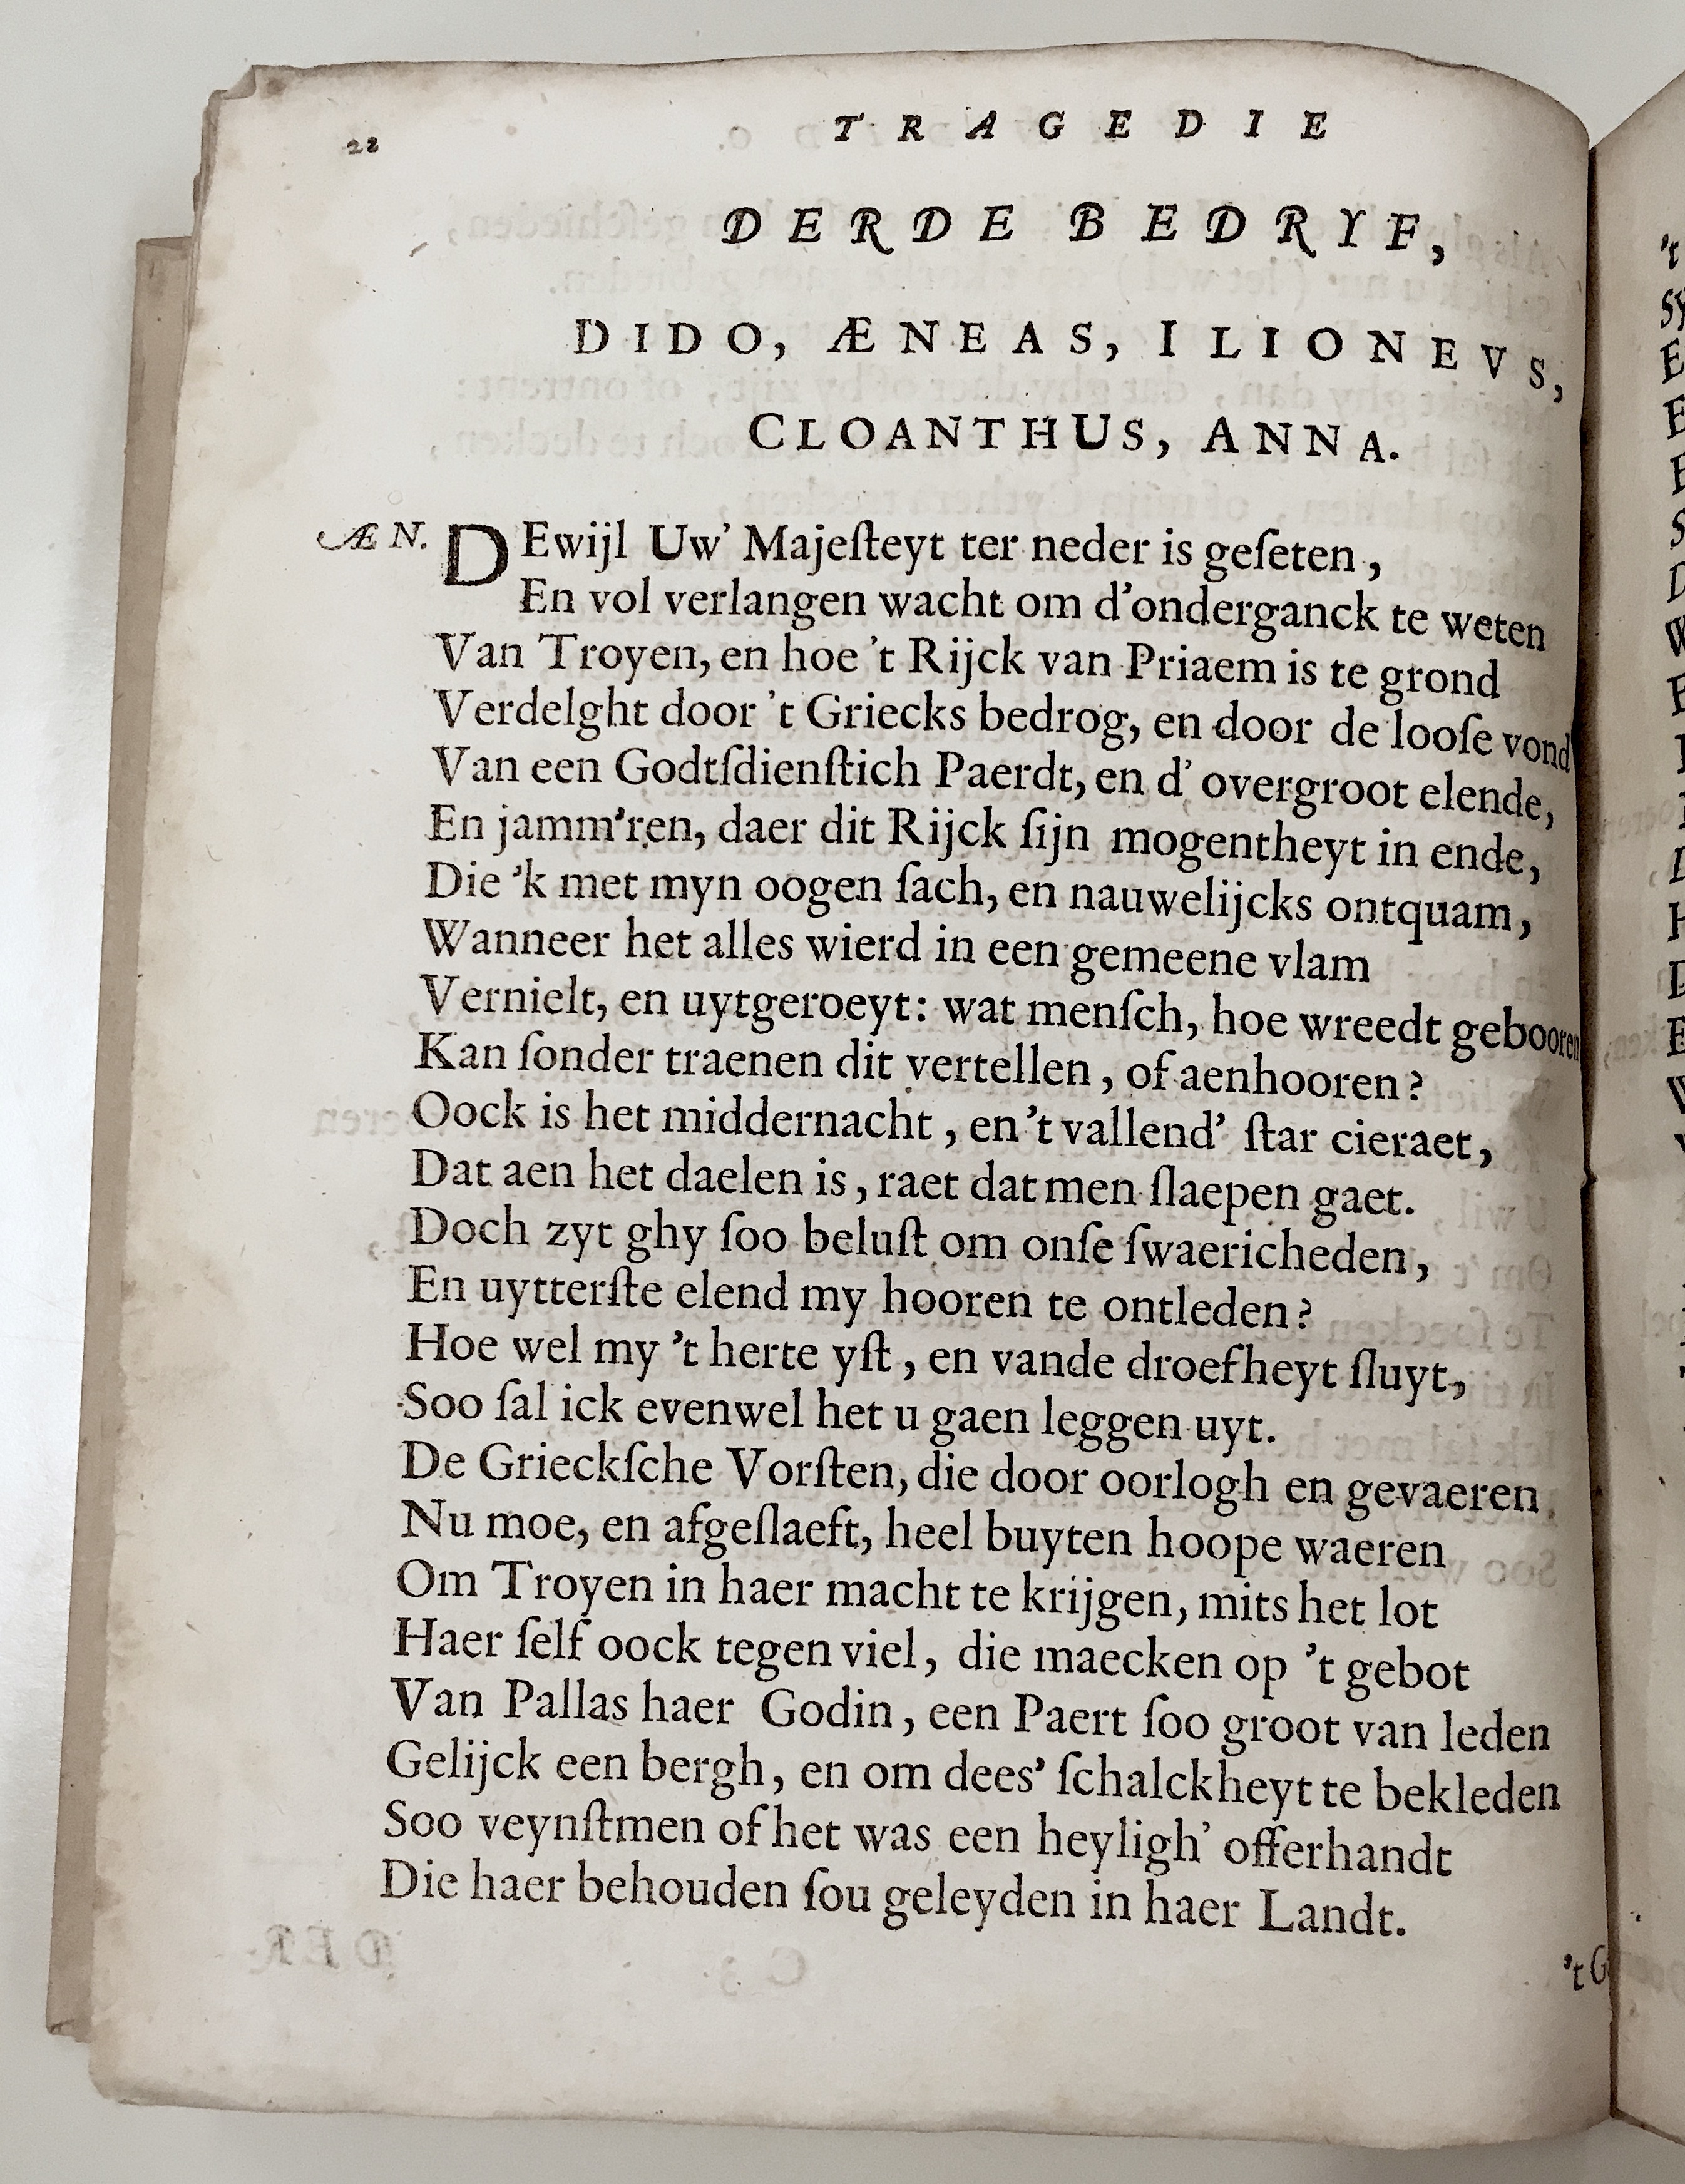 22
TRAGEDIE
DERDE BEDRYF,
DIDO, ÆNEAS, ILIONEVS,
CLOANTHUS, ANNA.
ÆN. DEwijl Uw' Majeſteyt ter neder is geſeten,
En vol verlangen wacht om d'onderganck te weten
Van Troyen, en hoe 't Rijck van Priaem is te grond
Verdelght door 't Griecks bedrog, en door de looſe vond
Van een Godtſdienſtich Paerdt, en d' overgroot elende,
En jamm'ren, daer dit Rijck ſijn mogentheyt in ende,
Die 'k met myn oogen ſach, en nauwelijcks ontquam,
Wanneer het alles wierd in een gemeene vlam
Vernielt, en uytgeroeyt: wat menſch, hoe wreedt gebooren
Kan ſonder traenen dit vertellen, of aenhooren?
Oock is het middernacht, en 't vallend' ſtar cieraet,
Dat aen het daelen is, raet dat men ſlaepen gaet.
Doch zyt ghy ſoo beluſt om onſe ſwaericheden,
En uytterſte elend my hooren te ontleden?
Hoe wel my 't herte yſt, en vande droefheyt ſluyt,
Soo ſal ick evenwel het u gaen leggen uyt.
De Grieckſche Vorſten, die door oorlogh en gevaeren
Nu moe, en afgeſlaeft, heel buyten hoope waeren
Om Troyen in haer macht te krijgen, mits het lot
Haer ſelf oock tegen viel, die maecken op 't gebot
Van Pallas haer Godin, een Paert ſoo groot van leden
Gelijck een bergh, en om dees' ſchalckheyt te bekleden
Soo veynſtmen of het was een heyligh' offerhandt
Die haer behouden ſou geleyden in haer Landt.
't